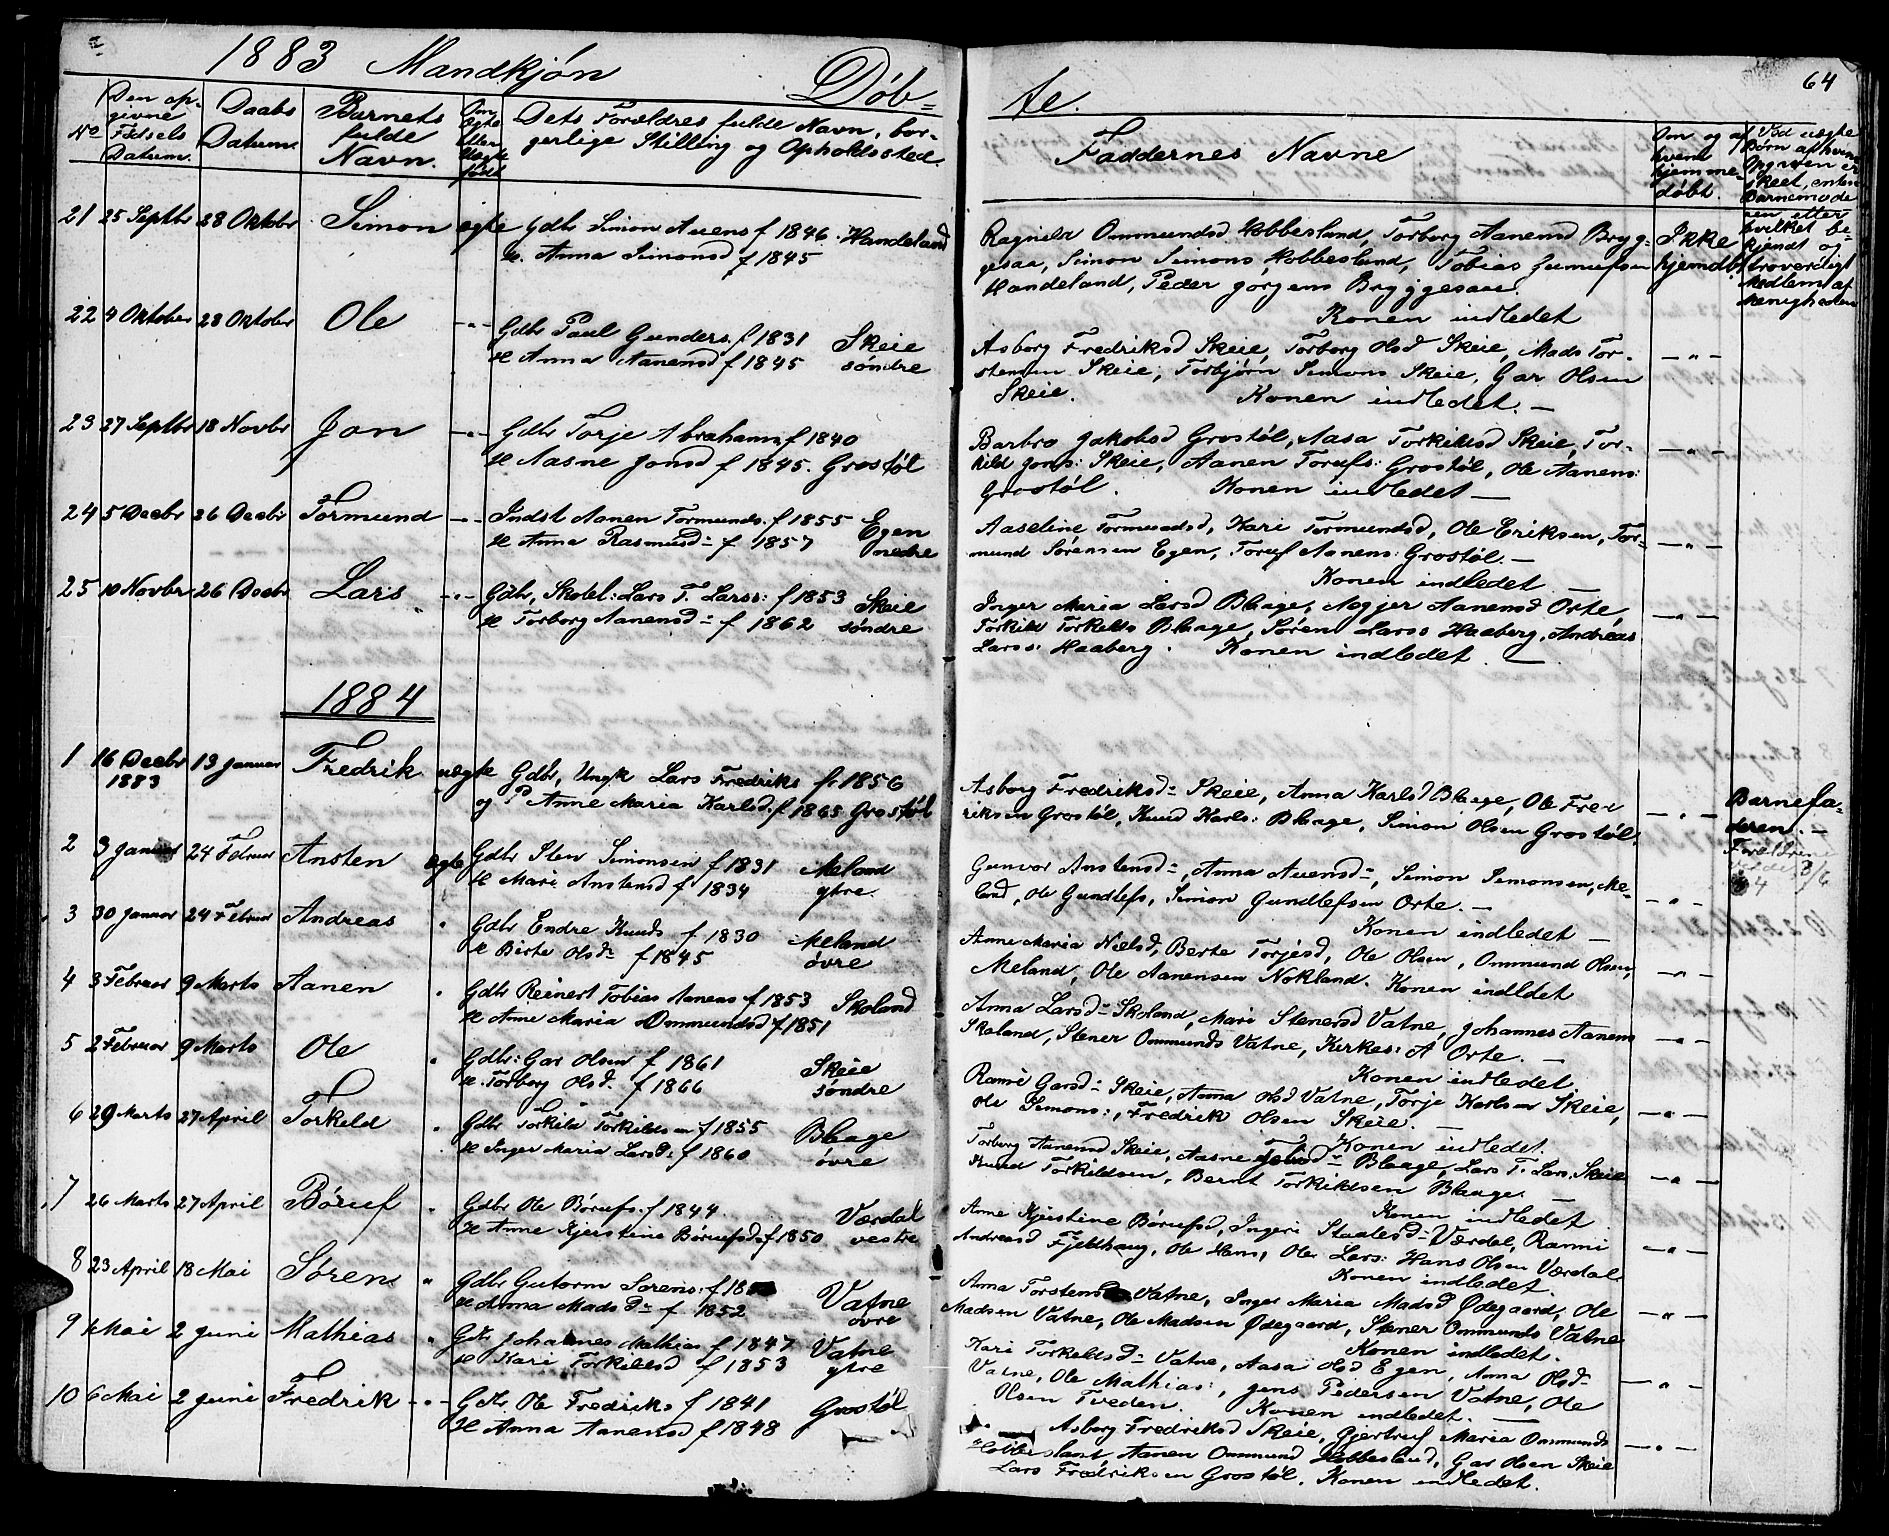 1883 Mandkjøn Døb=
te. 64
No
Den op-
givne
Fødsels
Datum.
Daabs
Datum.
Barnets
fulde
Navn.
Om
ægte
eller
uægte
født
Dets Forældres fulde Navn, bor-
gerlige Stilling og Opholdssted.
Faddernes Navne
Om og af
hvem
hjemme-
døbt.
Ved uægte
Børn af hvem
Opgaven er
skeet, enten
Barnemode
ren eller
hvilket be-
kjendt og
troværdigt
Medlem af
Menigheden
21 25 Septbr 28 Oktobr Simon ægte Gdbr Simon Auens f 1846. Handeland
H. Anna Simonsd f 1845
Ragnild Ommundsd Hobbesland, Torborg Aanensd Bryg-
gesaa, Simon Simons Hobbesland, Tobias Gunufsen
Handeland, Peder Jørgens Bryggesaa.
Konen indledet
Ikke
hjemdbt
22 4 Oktober 28 Oktober Ole -"- Gdbr Paul Gunders. f 1831 Skeie
H Anna Aanensd f 1845 søndre
Asborg Fredriksd Skeie, Torborg Olsd Skeie, Mads Tor-
stensen Skeie, Torbjørn Simons Skeie, Gar Olsen
Skeie. Konen indledet. - -"-
23 27 Septbr 18 Novbr Jon -"- Gdbr Torje Abrahams f 1840
H Aasne Jonsd f 1845. Grostøl
Barbro Jakobsd Grostøl, Aasa Torkildsd Skeie, Tor-
kild Jons: Skeie, Aanen Torufs: Grostøl, Ole Aanens:
Grostøl. Konen indledet - -"-
24 5 Decbr 26 Decbr Tormund -"- Indst Aanen Tormunds. f 1855 Egen
H Anna Rasmusd f 1857 nedre
Aaseline Tormundsd, Kari Tormundsd, Ole Eriksen, Tor-
mund Sørensen Egen, Toruf Aanens: Grostøl. -
Konen indledet - -"-
25 10 Novbr 26 Decbr Lars -"- Gdbr, Skolel: Lars T. Larss: f 1853 Skeie
H Torborg Aanensd f 1862 søndre
Inger Maria Larsd Blaage, Aagjer Aanensd Orte,
Torkild Torkilds Blaage, Søren Larss Haaberg, Andreas
Larss: Haaberg. Konen indledet. - -"-
1884
1 16 Decbr 13 Januar Fredrik uægte Gdbr, Ungk Lars Fredriks f. 1856
1883 og P Anne Maria Karlsd. f 1865 Grostøl
Asborg Fredriksd Skeie, Anna Karlsd Blaage, Ole Fred-
riksen Grostøl, Knud Karls: Blaage, Simon Olsen Grostøl. -"-
Barnefa-
deren. -
Forældrene
8/6
84
2 3 Januar 24 Februar Ansten ægte Gdbr Sten Simonsen f 1831 Meland
H Mari Anstensd f 1834 ytre.
Gunvor Anstensd, Anna Auensd, Simon Simonsen, Me-
land, Ole Gundlefs, Simon Gundlefsen Orte. -
Konen indledet - -"-
3 30 Januar 24 Februar Andreas " Gdbr Endre Knuds f 1830 Meland
H Birte Olsd f 1845 øvre
Anne Maria Nielsd, Berte Torjesd, Ole Olsen, Ommund Olsen,
Meland, Ole Aanensen Nokland. Konen indldet -"-
4 3 Februar 9 Marts Aanen " Gdbr Reinert Tobias Aanens f 1853 Skoland
H Anne Maria Ommundsd f 1851
Anna Larsd Skoland, Mari Stenersd Vatne, Johannes Aanens
Skoland, Stener Ommunds Vatne, Kirkes: A Orte. -
Konen indledet. -"-
5 2 Februar 9 Marts Ole " Gdbr: Gar Olsen f 1861 Skeie
H. Torborg Olsd. f 1866 søndre
Ranni Garsd Skeie, Anna Olsd Vatne, Torje Karlsen Skeie,
Ole Simons:, Fredrik Olsen Skeie. -
Konen indledet. -"-
6 29 Marts 27 April Torkeld " Gdbr Torkild Torkildsen f 1855 Blaage
H Inger Maria Larsd: f 1860 øvre
Torborg Aanensd Skeie, Aasne Blaage, Lars T. Lars. Skeie
Knud Torkildsen, Bernt Torkildsen Blaage. -
Konen indledet -"-
7 26 Marts 27 April Børuf " Gdbr Ole Børufs. f 1844 Værdal
H Anne Kjerstine Børufsd. f 1850 vestre
Anne Kjerstine Børufsd, Ingeri Staalesd Værdal, Ranni
Andreasd Fjeldhaug, Ole Hans, Ole Lars: Hans Olsen Værdal
Konen indledet. -"-
8 23 April 18 Mai Søren " Gdbr Gutorm Sørens: f 18 Vatne
H Anna Madsd f 1852 øvre
Anna Torstensd Vatne, Inger Maria Madsd Ødegaard, Ole
Madsen Vatne, Ole Madsen Ødegaard, Stener Ommunds Vatne
Konen indledet. -"-
9 Mai 2 Juni Mathias " Gdbr Johannes Mathias f 1847 Vatne
H Kari Torkildsd f 1853 ytre
Kari Torkildsd Vatne, Aasa Olsd Egen, Anna Olsd
Vatne, Ole Mathias:, Jens Pedersen Vatne, Ole
Olsen Tveden. Konen indledet. - -"-
10 6 Mai 2 Juni Fredrik -"- Gdbr. Ole Fredriks f 1841 Grostøl
H Anna Aanensd f 1848
Asborg Fredriksd Skeie, Gjertruf Maria Ommunds
Hobbesland, Aanen Ommund Hobbesland, Gar Olsen Skeie
Lars Fredriksen Grostøl. Konen indledet. -"-